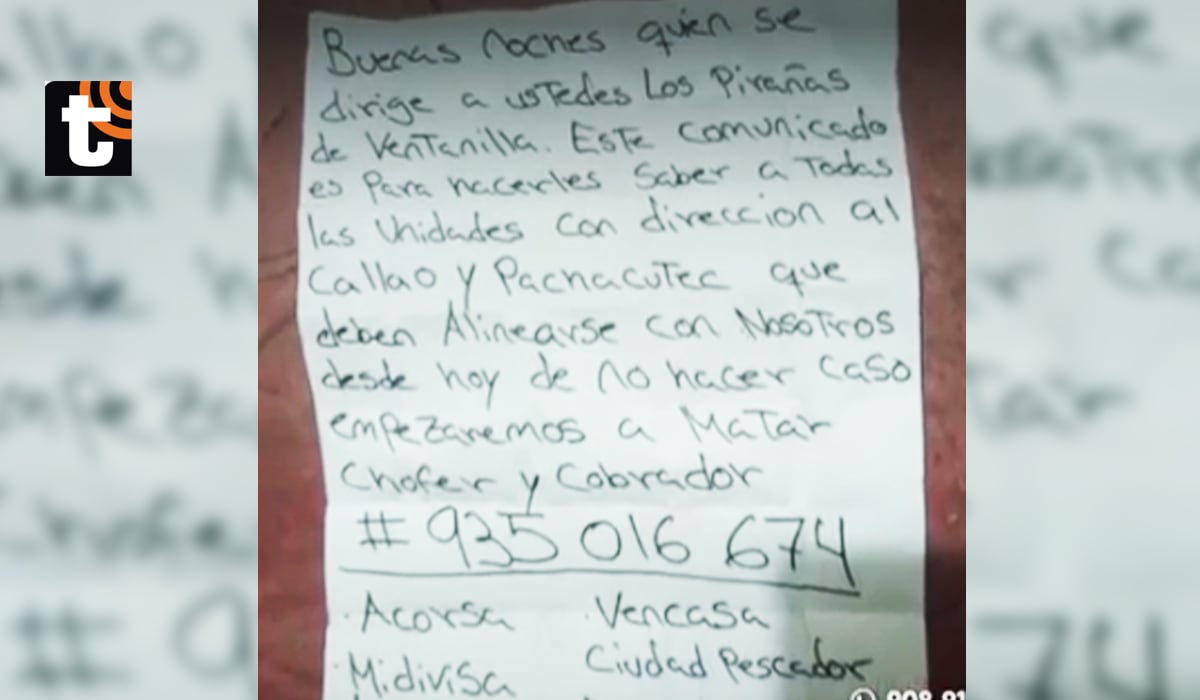 t
Buenas noches quien se
dirige a ustedes Los Pirañas
de Ventanilla. Este comunicado
es Para hacerles Saber a Todas
las Unidades con direccion al
Callao y Pachacutec que
deben Alinearse con Nosotros
desde hoy de no hacer caso
empezaremos a Matar
Chofer y Cobrador
# 935 016 674
· Acorsa · Vencasa
· Midivisa Ciudad Pescador